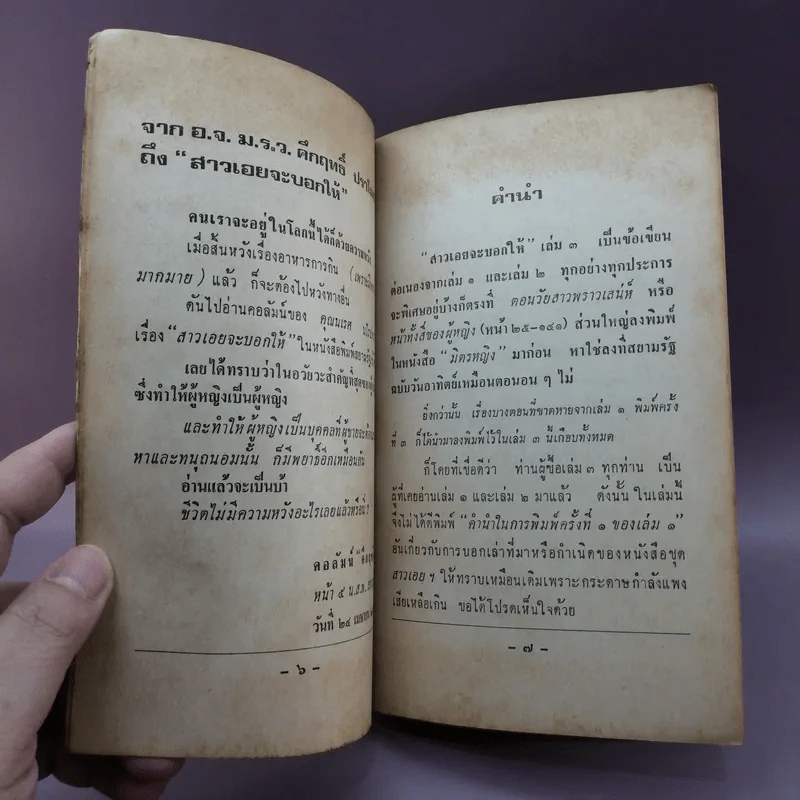 จาก อ.จ. ม.ร.ว. คึกฤทธิ์
ถึง “สาวเอยจะบอกให้”
คนเราจะอยู่ในโลกนี้ได้ก็ด้วยความหวัง
เมื่อสิ้นหวังเรื่องอาหารการกิน
มากมาย) แล้ว ก็จะต้องไปหวังทางอื่น
ดันไปอ่านคอลัมน์ของ คุณนเรศ
เรื่อง “สาวเอยจะบอกให้” ในหนังสือพิมพ์
เลยได้ทราบว่าในอวัยวะสำคัญที่สุดของ
ซึ่งทำให้ผู้หญิงเป็นผู้หญิง
และทำให้ผู้หญิงเป็นบุคคลที่ผู้ชายจะ
หาและทนุถนอมนั้น ก็มีพยาธิ์อีกเหมือนกัน
อ่านแล้วจะเป็นบ้า
ชีวิตไม่มีความหวังอะไรเลยแล้วหรือนี่?
คอลัมน์
หน้า ๕ น.ส.พ.
วันที่ ๒๔
– ๖ –
คำนำ
“สาวเอยจะบอกให้” เล่ม ๓ เป็นข้อเขียน
ต่อเนื่องจากเล่ม ๑ และเล่ม ๒ ทุกอย่างทุกประการ
จะพิเศษอยู่บ้างก็ตรงที่ ตอนวัยสาวพราวเสน่ห์ หรือ
หน้าทั้งสี่ของผู้หญิง (หน้า ๒๕-๑๔๑) ส่วนใหญ่ลงพิมพ์
ในหนังสือ “มิตรหญิง” มาก่อน หาใช่ลงที่สยามรัฐ
ฉบับวันอาทิตย์เหมือนตอนอน ๆ ไม่
ยิ่งกว่านั้น เรื่องบางตอนที่ขาดหายจากเล่ม ๑ พิมพ์ครั้ง
ที่ ๓ ก็ได้นำมาลงพิมพ์ไว้ในเล่ม ๓ นี้เกือบทั้งหมด
ก็โดยที่เชื่อดีว่า ท่านผู้ซื้อเล่ม ๓ ทุกท่าน เป็น
ผู้ที่เคยอ่านเล่ม ๑ และเล่ม ๒ มาแล้ว ดังนั้น ในเล่มนี้
จึงไม่ได้ตีพิมพ์ “คำนำในการพิมพ์ครั้งที่ ๑ ของเล่ม ๑”
อันเกี่ยวกับการบอกเล่าที่มาหรือกำเนิดของหนังสือชุด
สาวเอย ฯ ให้ทราบเหมือนเดิมเพราะกระดาษกำลังแพง
เสียเหลือเกิน ขอได้โปรดเห็นใจด้วย
– ๗ –